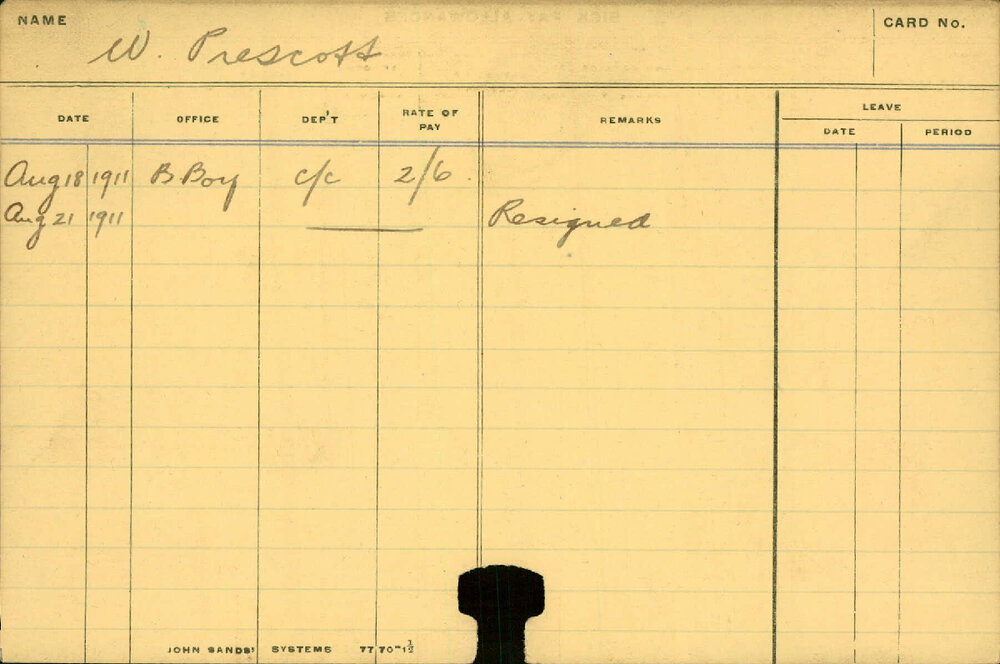 NAME W. Prescott CARD No.
DATE OFFICE DEP'T RATE OF PAY REMARKS LEAVE
DATE PERIOD
Aug 18 1911 B Boy c/c 2/6.
Aug 21 1911 Resigned
JOHN SANDS' SYSTEMS 77 70-1½